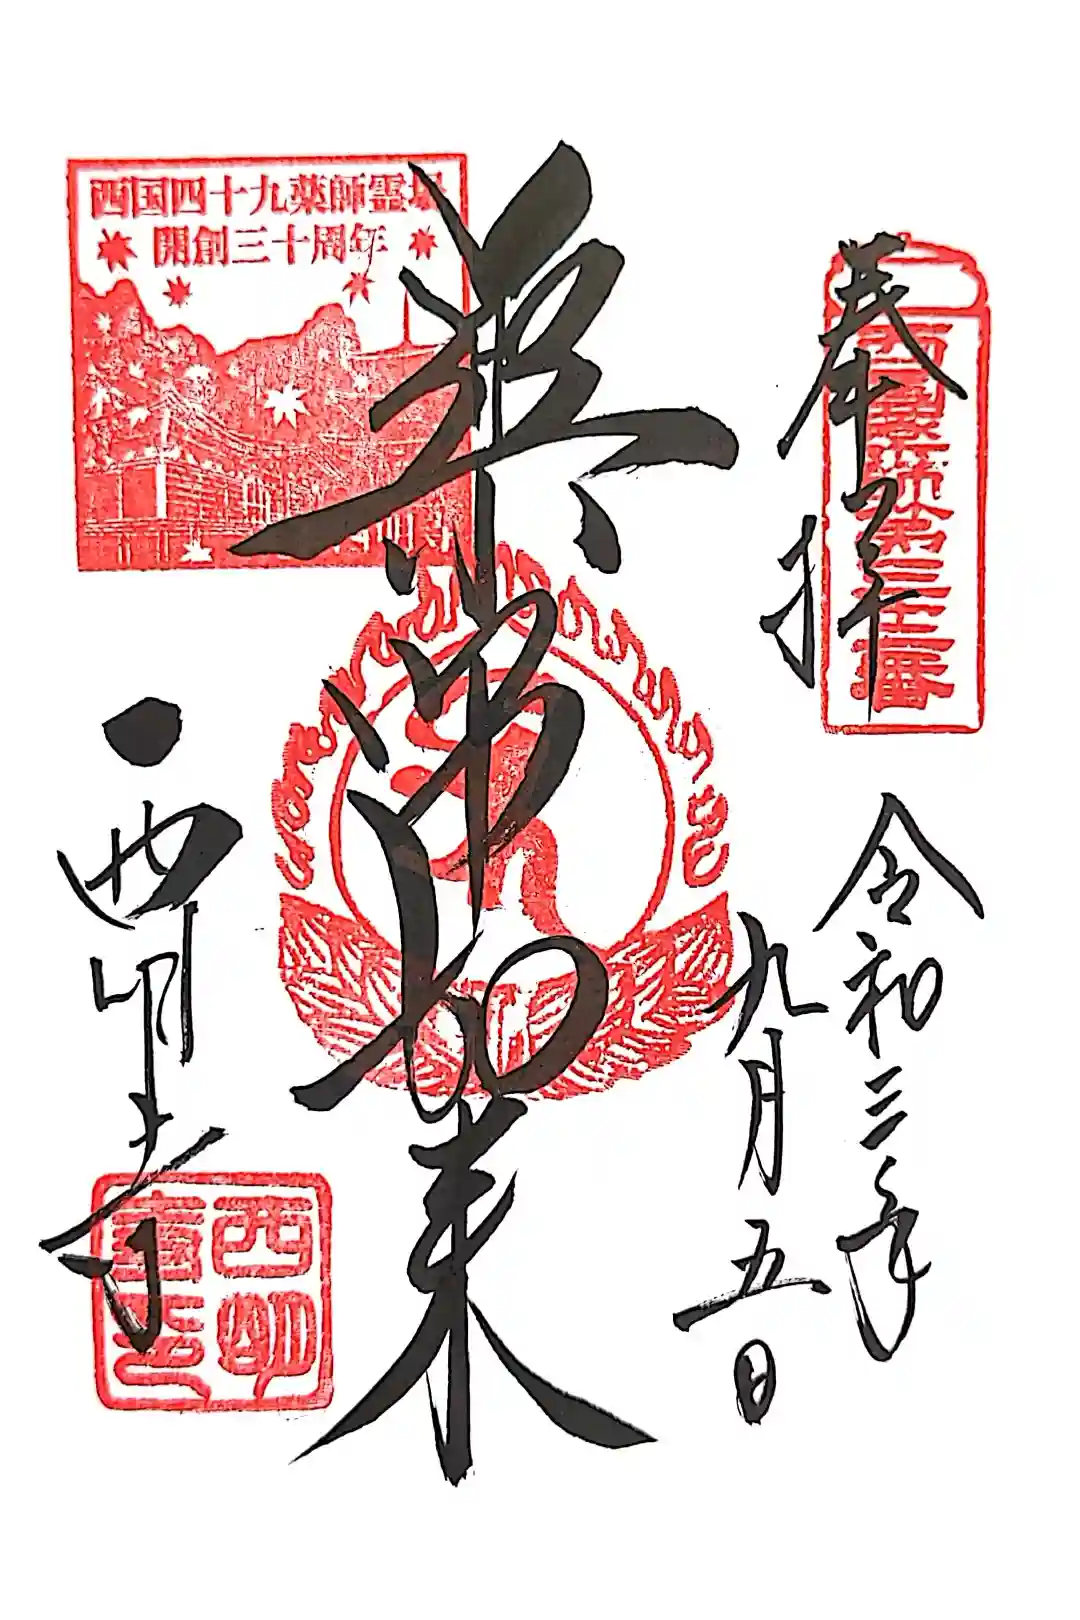 奉拝
西国薬師第三十二番
令和三年
九月五日
薬師如来
西国四十九薬師霊場
開創三十周年
西明寺
西明寺
西明
寺印